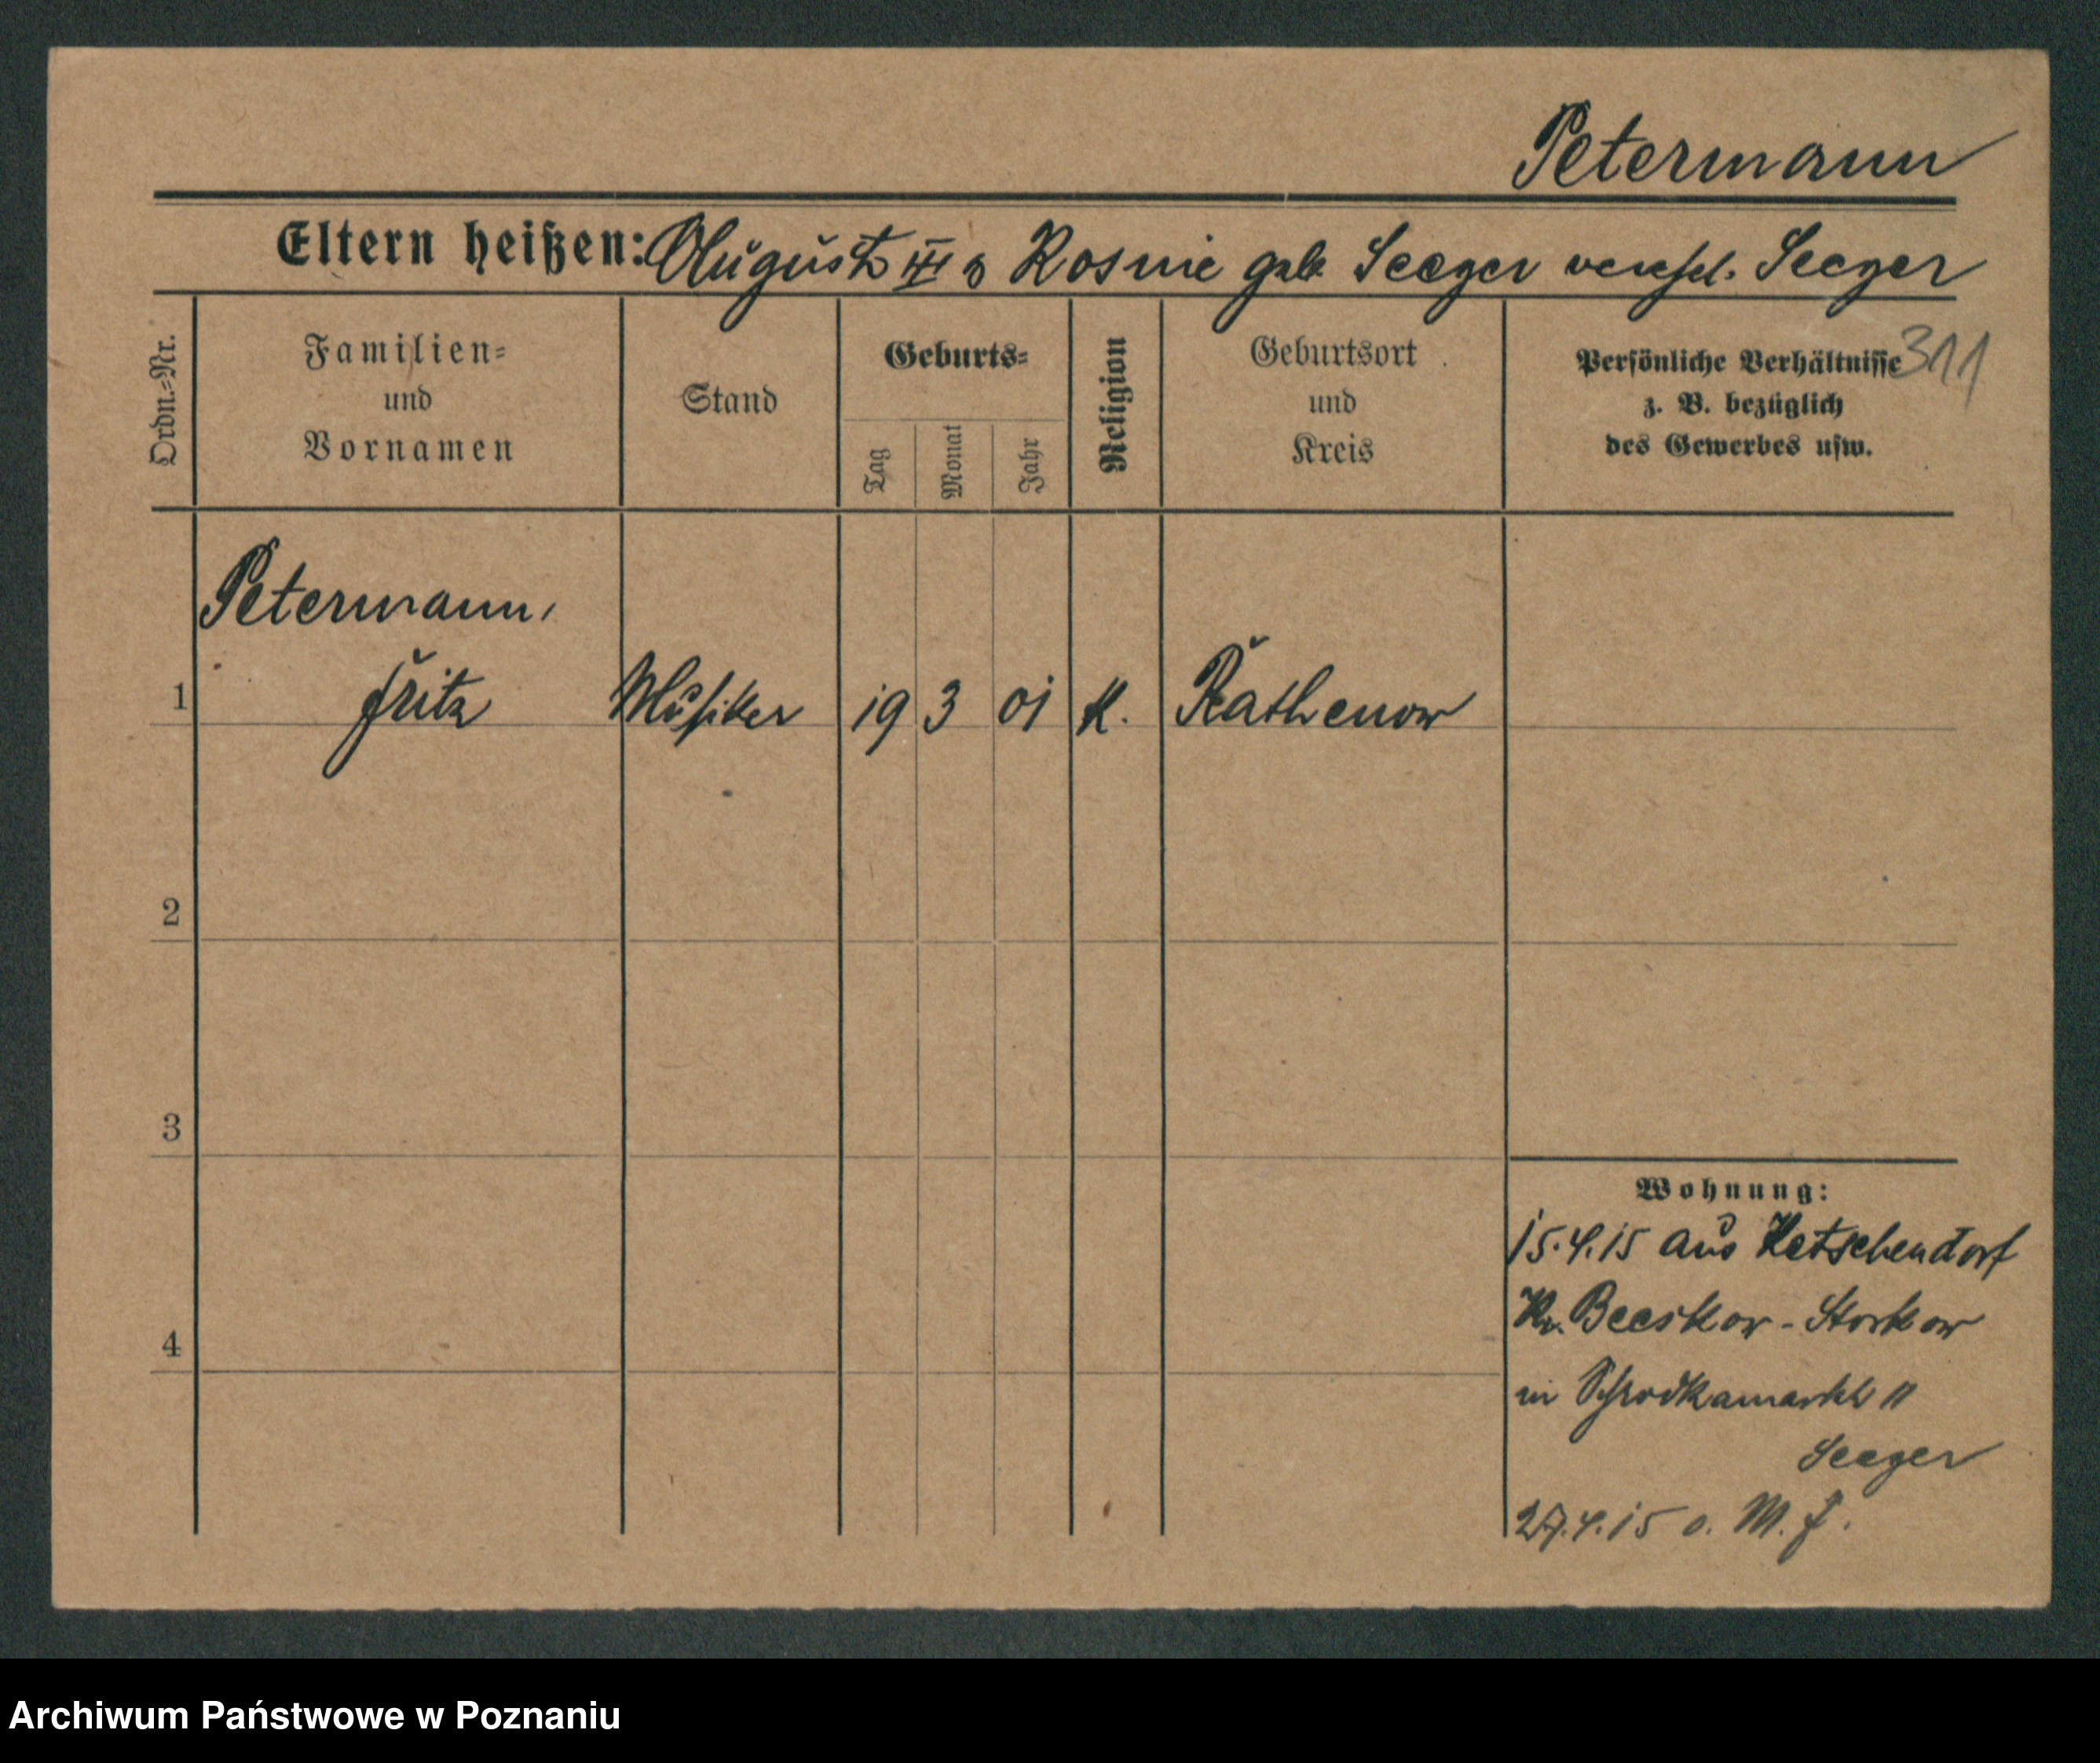 Petermann
Eltern heißen: August III Rosine geb. Seeger verehel. Seeger
Ordn.-Nr.
Familien-
und
Vornamen
Stand
Geburts-
Tag
Monat
Jahr
Religion
Geburtsort
und
Kreis
Persönliche Verhältnisse
z. B. bezüglich
des Gewerbes usw.
311
Petermann,
1 Fritz Musiker 19 3 01 K. Rathenow
2
3
4
Wohnung:
15.4.15 aus Ketschendorf
Kr. Beeskow-Storkow
in Schrodkamarkt 11
Seeger
27.4.15 o. M. f.
Archiwum Państwowe w Poznaniu